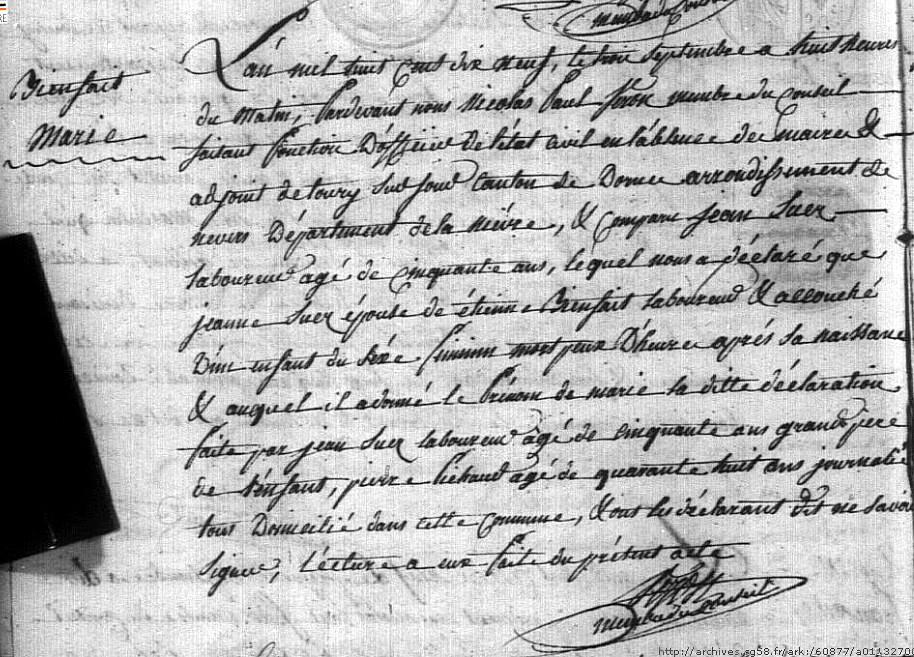 membre du Conseil
Bienfait
Marie
L'an mil huit cent dix neuf, le trois septembre a huit heures
du matin, Pardevant nous Nicolas Paul membre du Conseil
faisant fonction D'officier de l'état civil en l'absence de maire &
adjoint de toury sur jour Canton de Dorne arrondissement de
nevers Département de la nièvre, & comparu jean Suer
laboureur agé de cinquante ans, lequel nous a déclaré que
jeanne Suer épouse de étienne Bienfait laboureur & accouché
D'un enfant du séxe féminin mort peux D'heure après sa naissance
& auquel il a donné le Prénom de marie la ditte déclaration
faite par jean Suer laboureur agé de cinquante ans grand pere
de l'enfant, pierre agé de quarante huit ans journalié
tous Domicilié dans cette commune, & ont les déclarant dit ne savoir
signer, Lecture a eux fait du présent acte
membre du Conseil
http://archives.cg58.fr/ark:/60877/a01132700